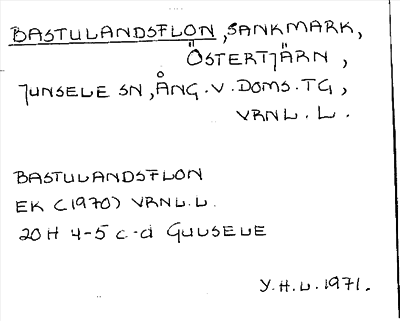 BASTULANDSFLON, SANKMARK,
ÖSTERTJÄRN,
JUNSELE SN, ÅNG. V. DOMS. TG,
VRNL. L.
BASTULANDSFLON
EK (1970) VRNL. L.
20H 4-5 c-d GULSELE
Y. H. L. 1971.